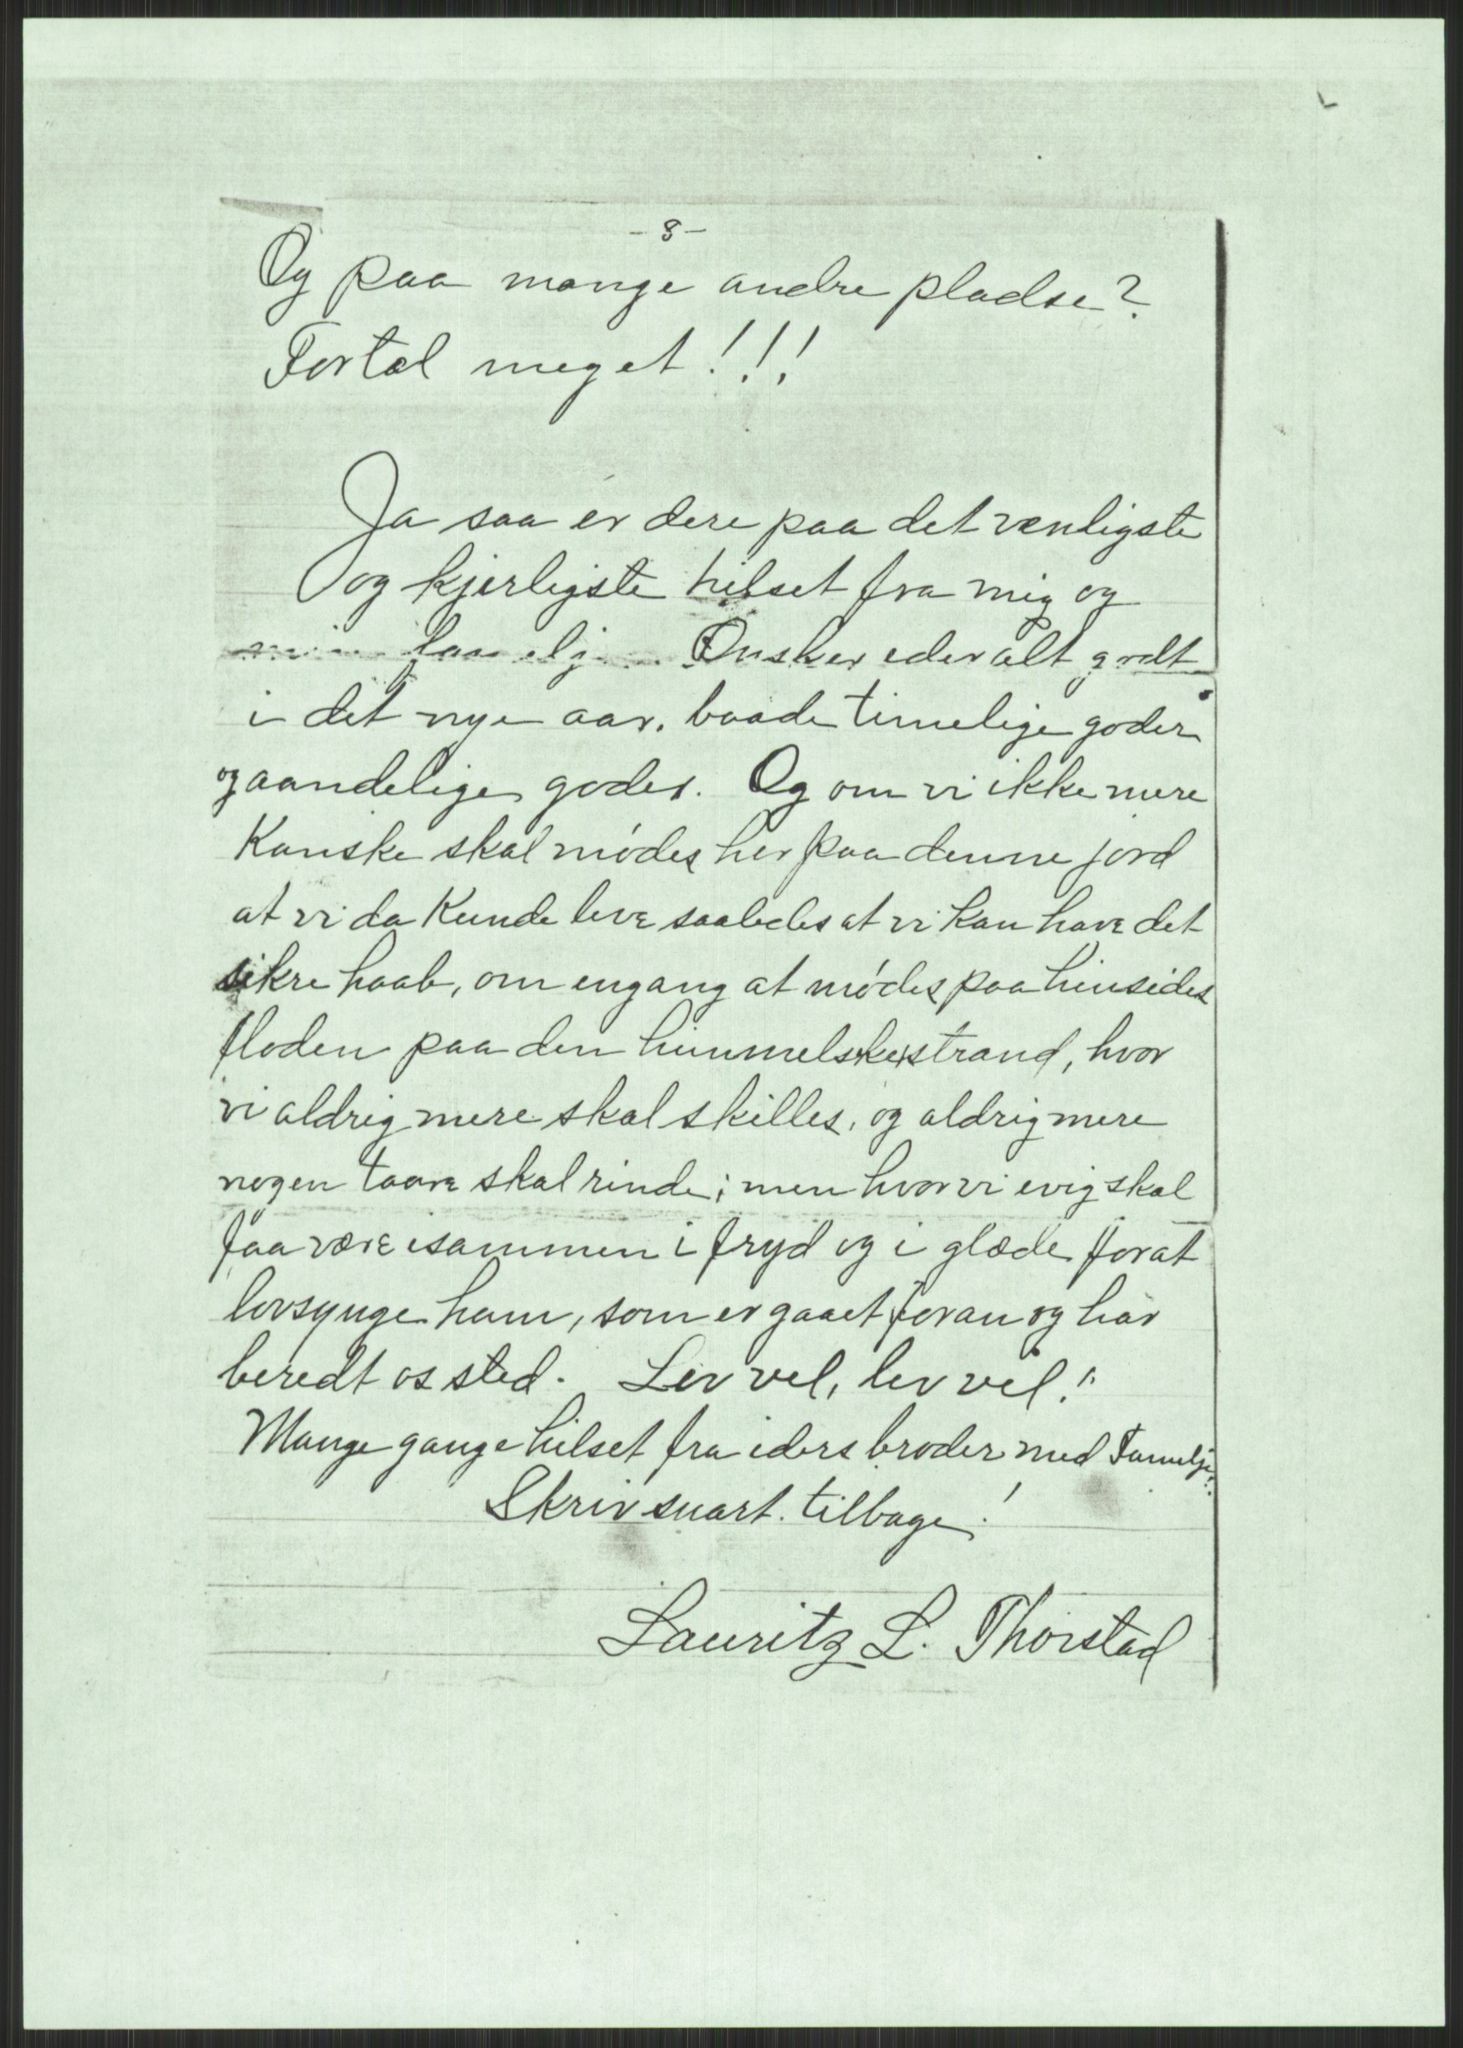 - 8 -
Og paa mange andre pladse?
Fortæl meget!!!
Ja saa er dere paa det venligste
og kjerligste hilset fra mig og
min Ønsker eder alt godt
i det nye aar, baade timelige goder
og aandelige goder. Og om vi ikke mere
Kanske skal mødes her paa denne jord
at vi da Kunde leve saaledes at vi kan have det
sikre haab, om engang at mødes paa hinsides
floden paa den himmelske strand, hvor
vi aldrig mere skal skilles, og aldrig mere
nogen taare skal rinde; men hvor vi evig skal
faa være isammen i fryd og i glæde forat
lovsynge ham, som er gaaet foran og har
beredt os sted. Lev vel, lev vel!"
Mange gange hilset fra eders broder med Familje.
Skriv snart tilbage!
Lauritz L. Thorstad